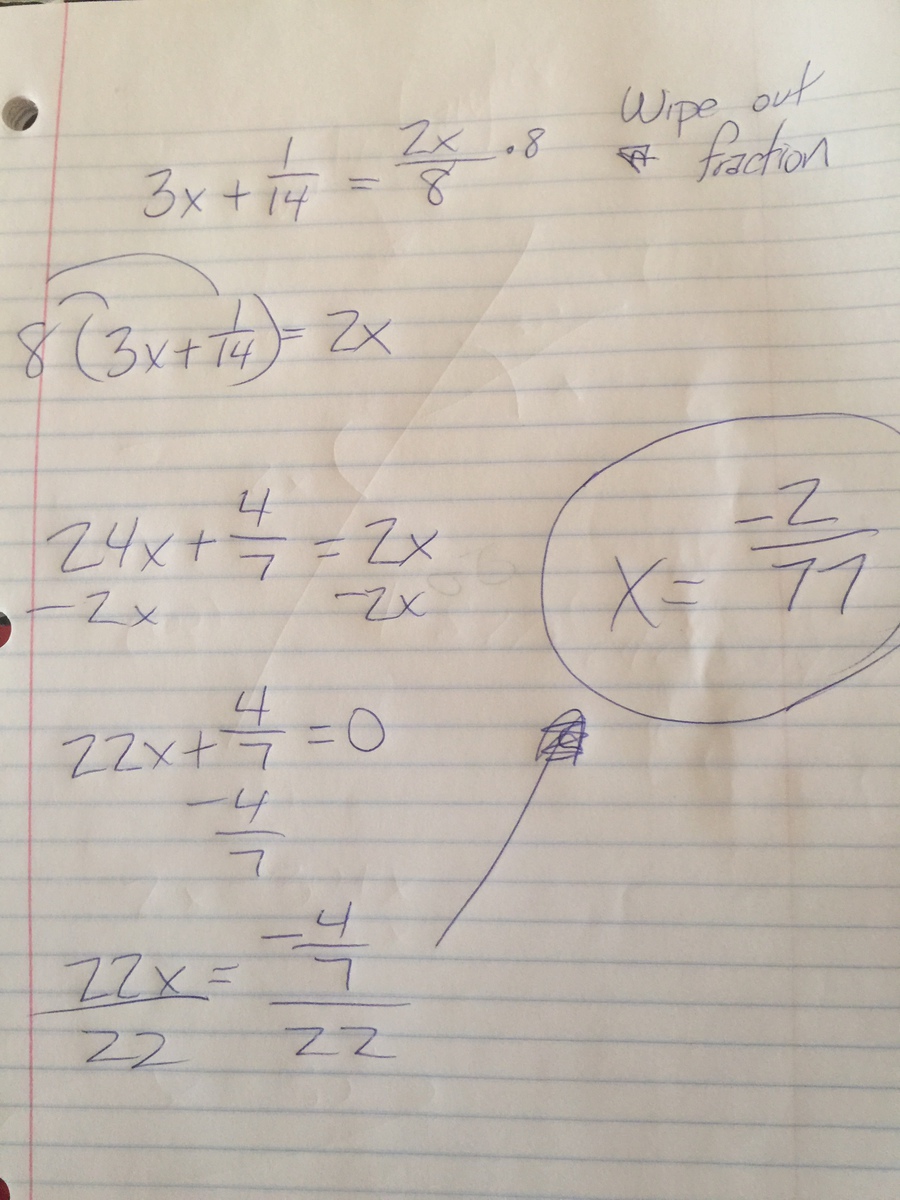 3x + 1/14 = 2x/8 · 8 Wipe out fraction
8(3x + 1/14) = 2x
24x + 4/7 = 2x
-2x -2x
x = -2/77
22x + 4/7 = 0
-4/7
22x/22 = -4/7/22